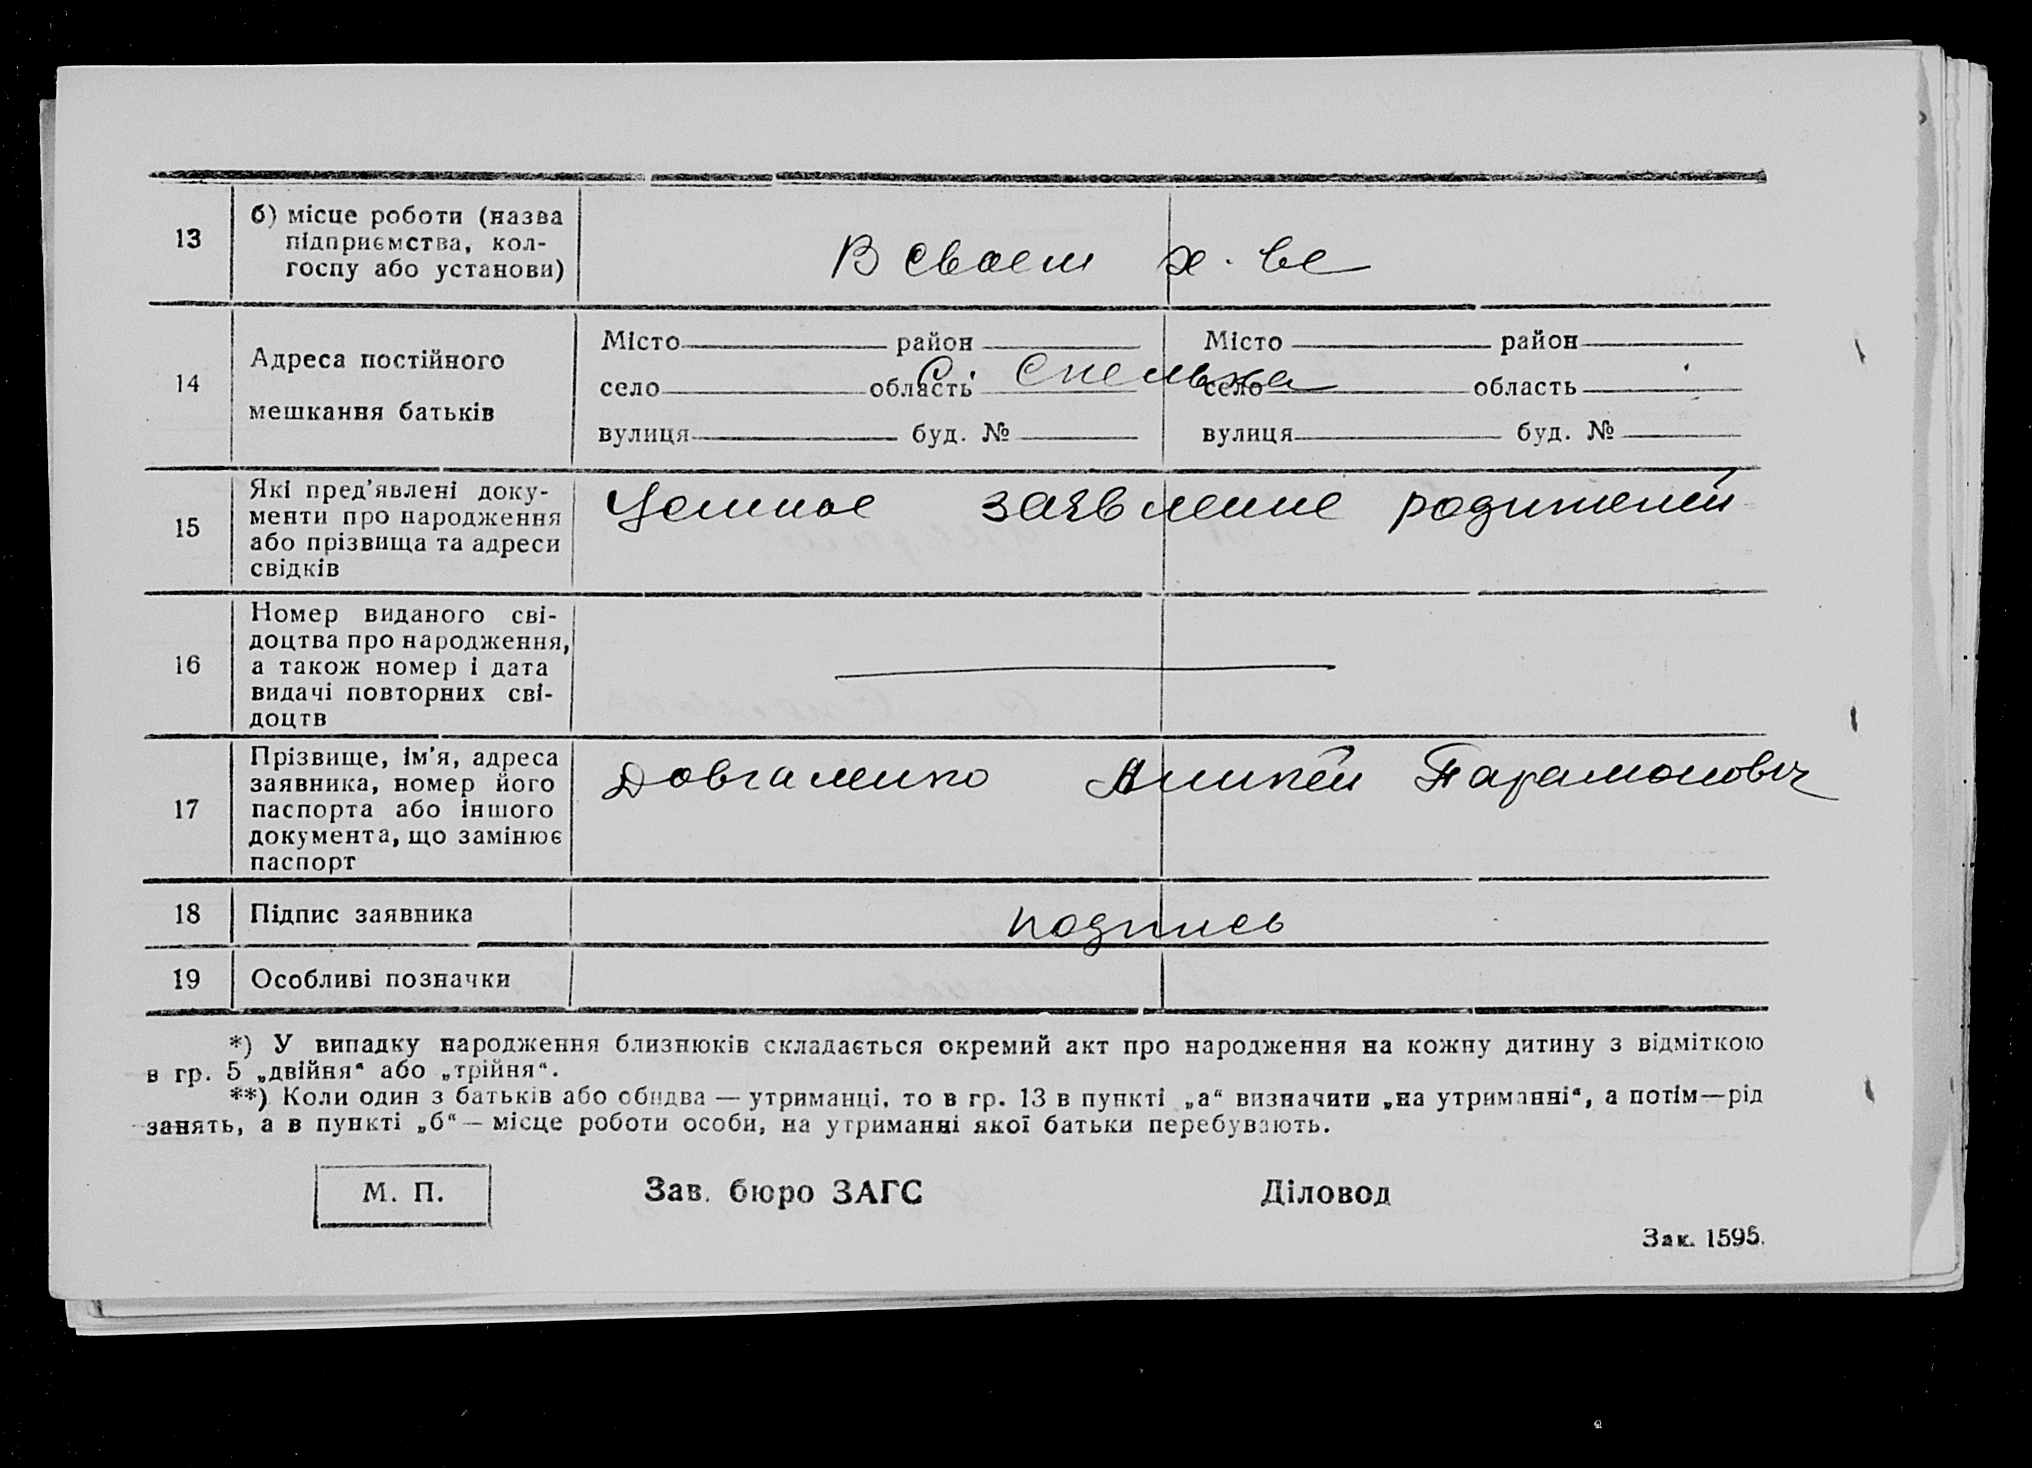 13
б) місце роботи (назва
підприємства, кол-
госпу або установи)
В сваем х-ве
14
Адреса постійного
мешкання батьків
Місто район
село область
вулиця буд. №
Місто район
село область
вулиця буд. №
С.
15
Які пред'явлені доку-
менти про народження
або прізвища та адреси
свідків
заявление родителей
16
Номер виданого сві-
доцтва про народження,
а також номер і дата
видачі повторних сві-
доцтв
17
Прізвище, ім'я, адреса
заявника, номер його
паспорта або іншого
документа, що замінює
паспорт
Парамонович
18
Підпис заявника
подпись
19
Особливі позначки
*) У випадку народження близнюків складається окремий акт про народження на кожну дитину з відміткою
в гр. 5 „двійня“ або „трійня“.
**) Коли один з батьків або обидва — утриманці, то в гр. 13 в пункті „а“ визначити „на утриманні“, а потім—рід
занять, а в пункті „б“ — місце роботи особи, на утриманні якої батьки перебувають.
М. П.
Зав. бюро ЗАГС
Діловод
Зак. 1595.